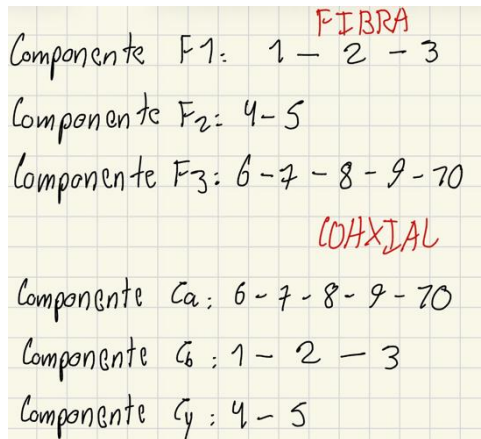 FIBRA
Componente F1: 1 - 2 - 3
Componente F2: 4 - 5
Componente F3: 6 - 7 - 8 - 9 - 10
COAXIAL
Componente Ca: 6 - 7 - 8 - 9 - 10
Componente Cb: 1 - 2 - 3
Componente Cy: 4 - 5